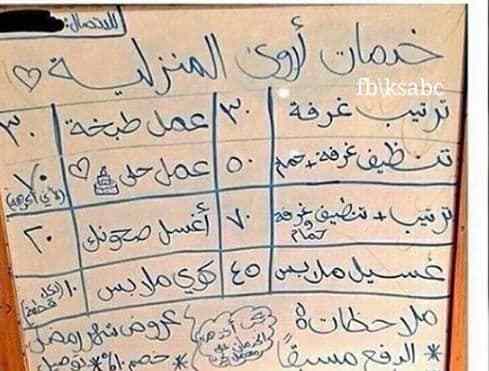 للاتصال:
خدمات أروى المنزلية ♡
fb\ksabc
ترتيب غرفة ٣٠ عمل طبخة ٣٠
تنظيف غرفة + حمام ٥٠ عمل حلى ♡ ٧٠
ترتيب + تنظيف غرفة وحمام ٧٠ أغسل صحونك ٢٠
غسيل ملابس ٤٥ كوي ملابس ١٠ (لكل قطعة)
ملاحظات:
* الدفع مسبقاً
عروض شهر رمضان
* خصم ١٠٪ * توصيل